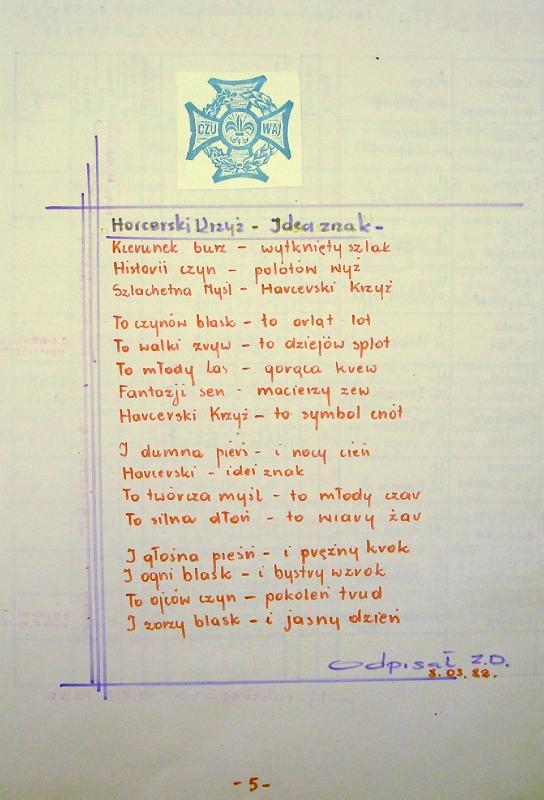 CZU WAJ
Harcerski Krzyż - Idei znak -
Kierunek burz - wytknięty szlak
Historii czyn - polotów wyż
Szlachetna Myśl - Harcerski Krzyż
To czynów blask - to orląt lot
To walki zryw - to dziejów splot
To młody Las - gorąca krew
Fantazji sen - macierzy zew
Harcerski Krzyż - to symbol cnót
I dumna pierś - i nocy cień
Harcerski - idei znak
To twórcza myśl - to młody czar
To silna dłoń - to wiary żar
I głośna pieśń - i prężny krok
I ogni blask - i bystry wzrok
To ojców czyn - pokoleń trud
I zorzy blask - i jasny dzień
Odpisał Z.D.
8.03.82.
- 5 -